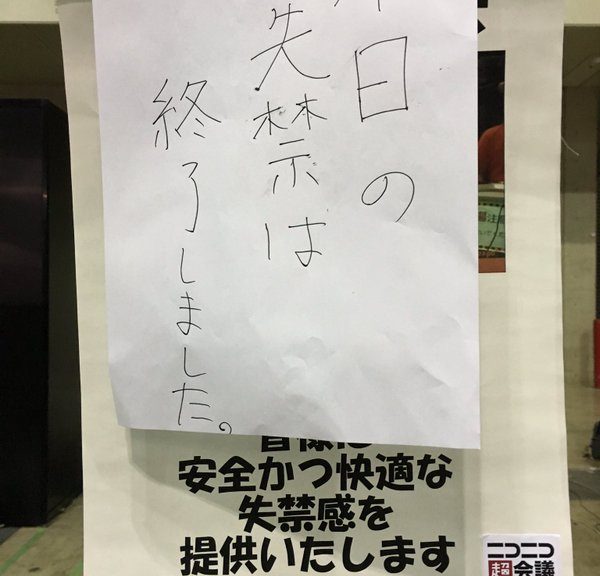 本日の
失禁は
終了しました。
皆様に
安全かつ快適な
失禁感を
提供いたします
ニコニコ
超会議